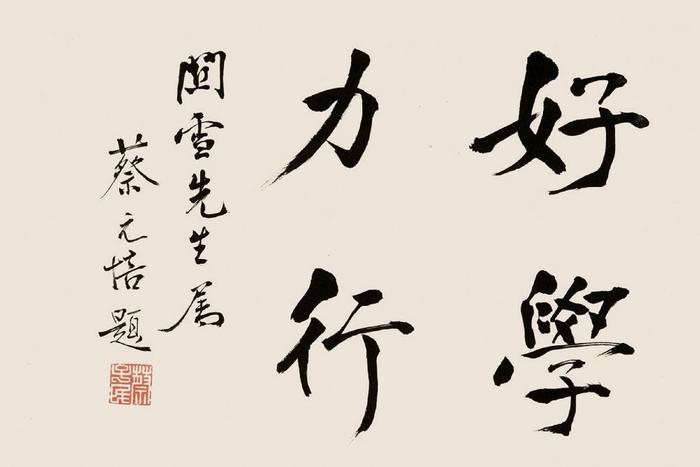 好學
力行
關雪先生属
蔡元培題